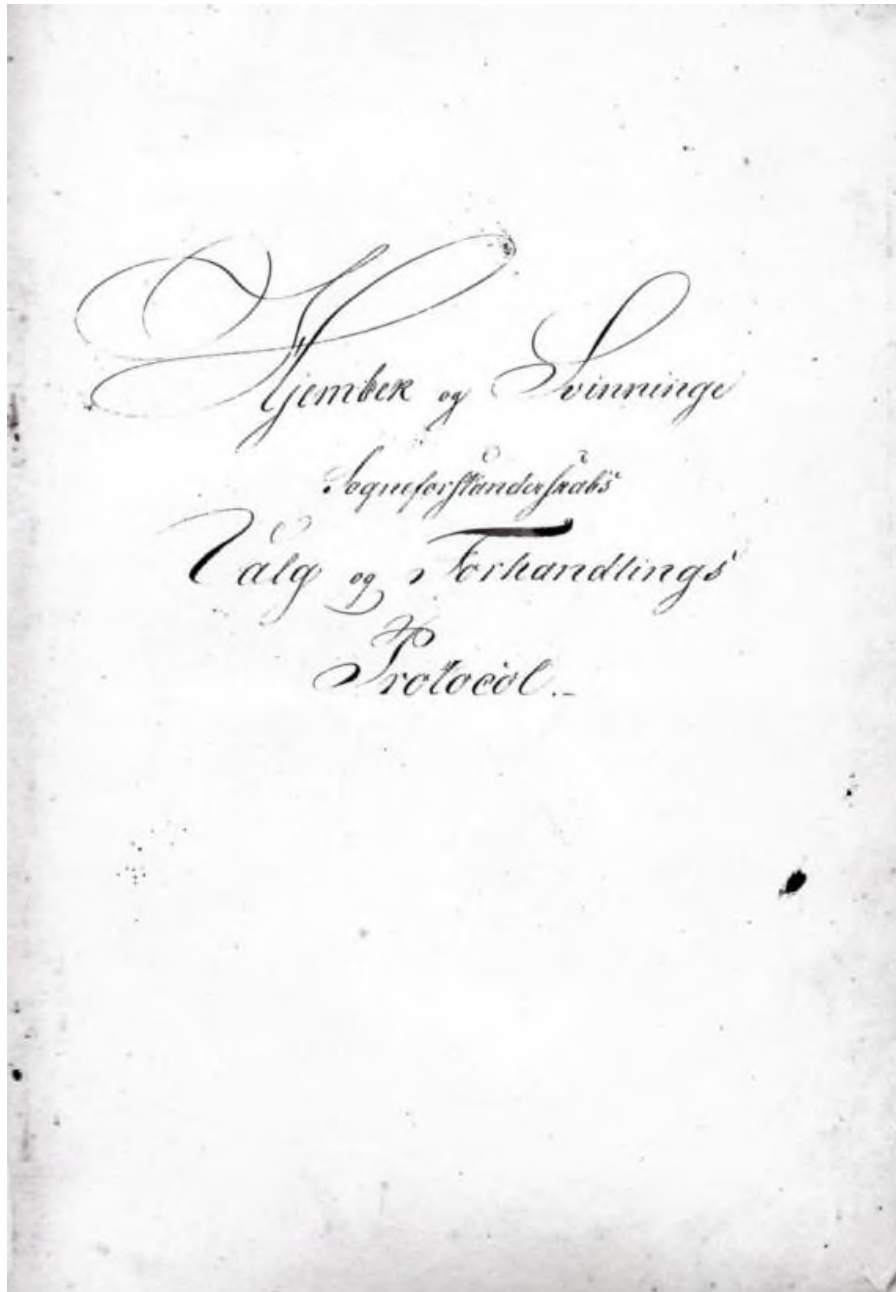 Hjembek og Svinninge
Sogneforstanderskabs
Valg og Forhandlings
Protocol.